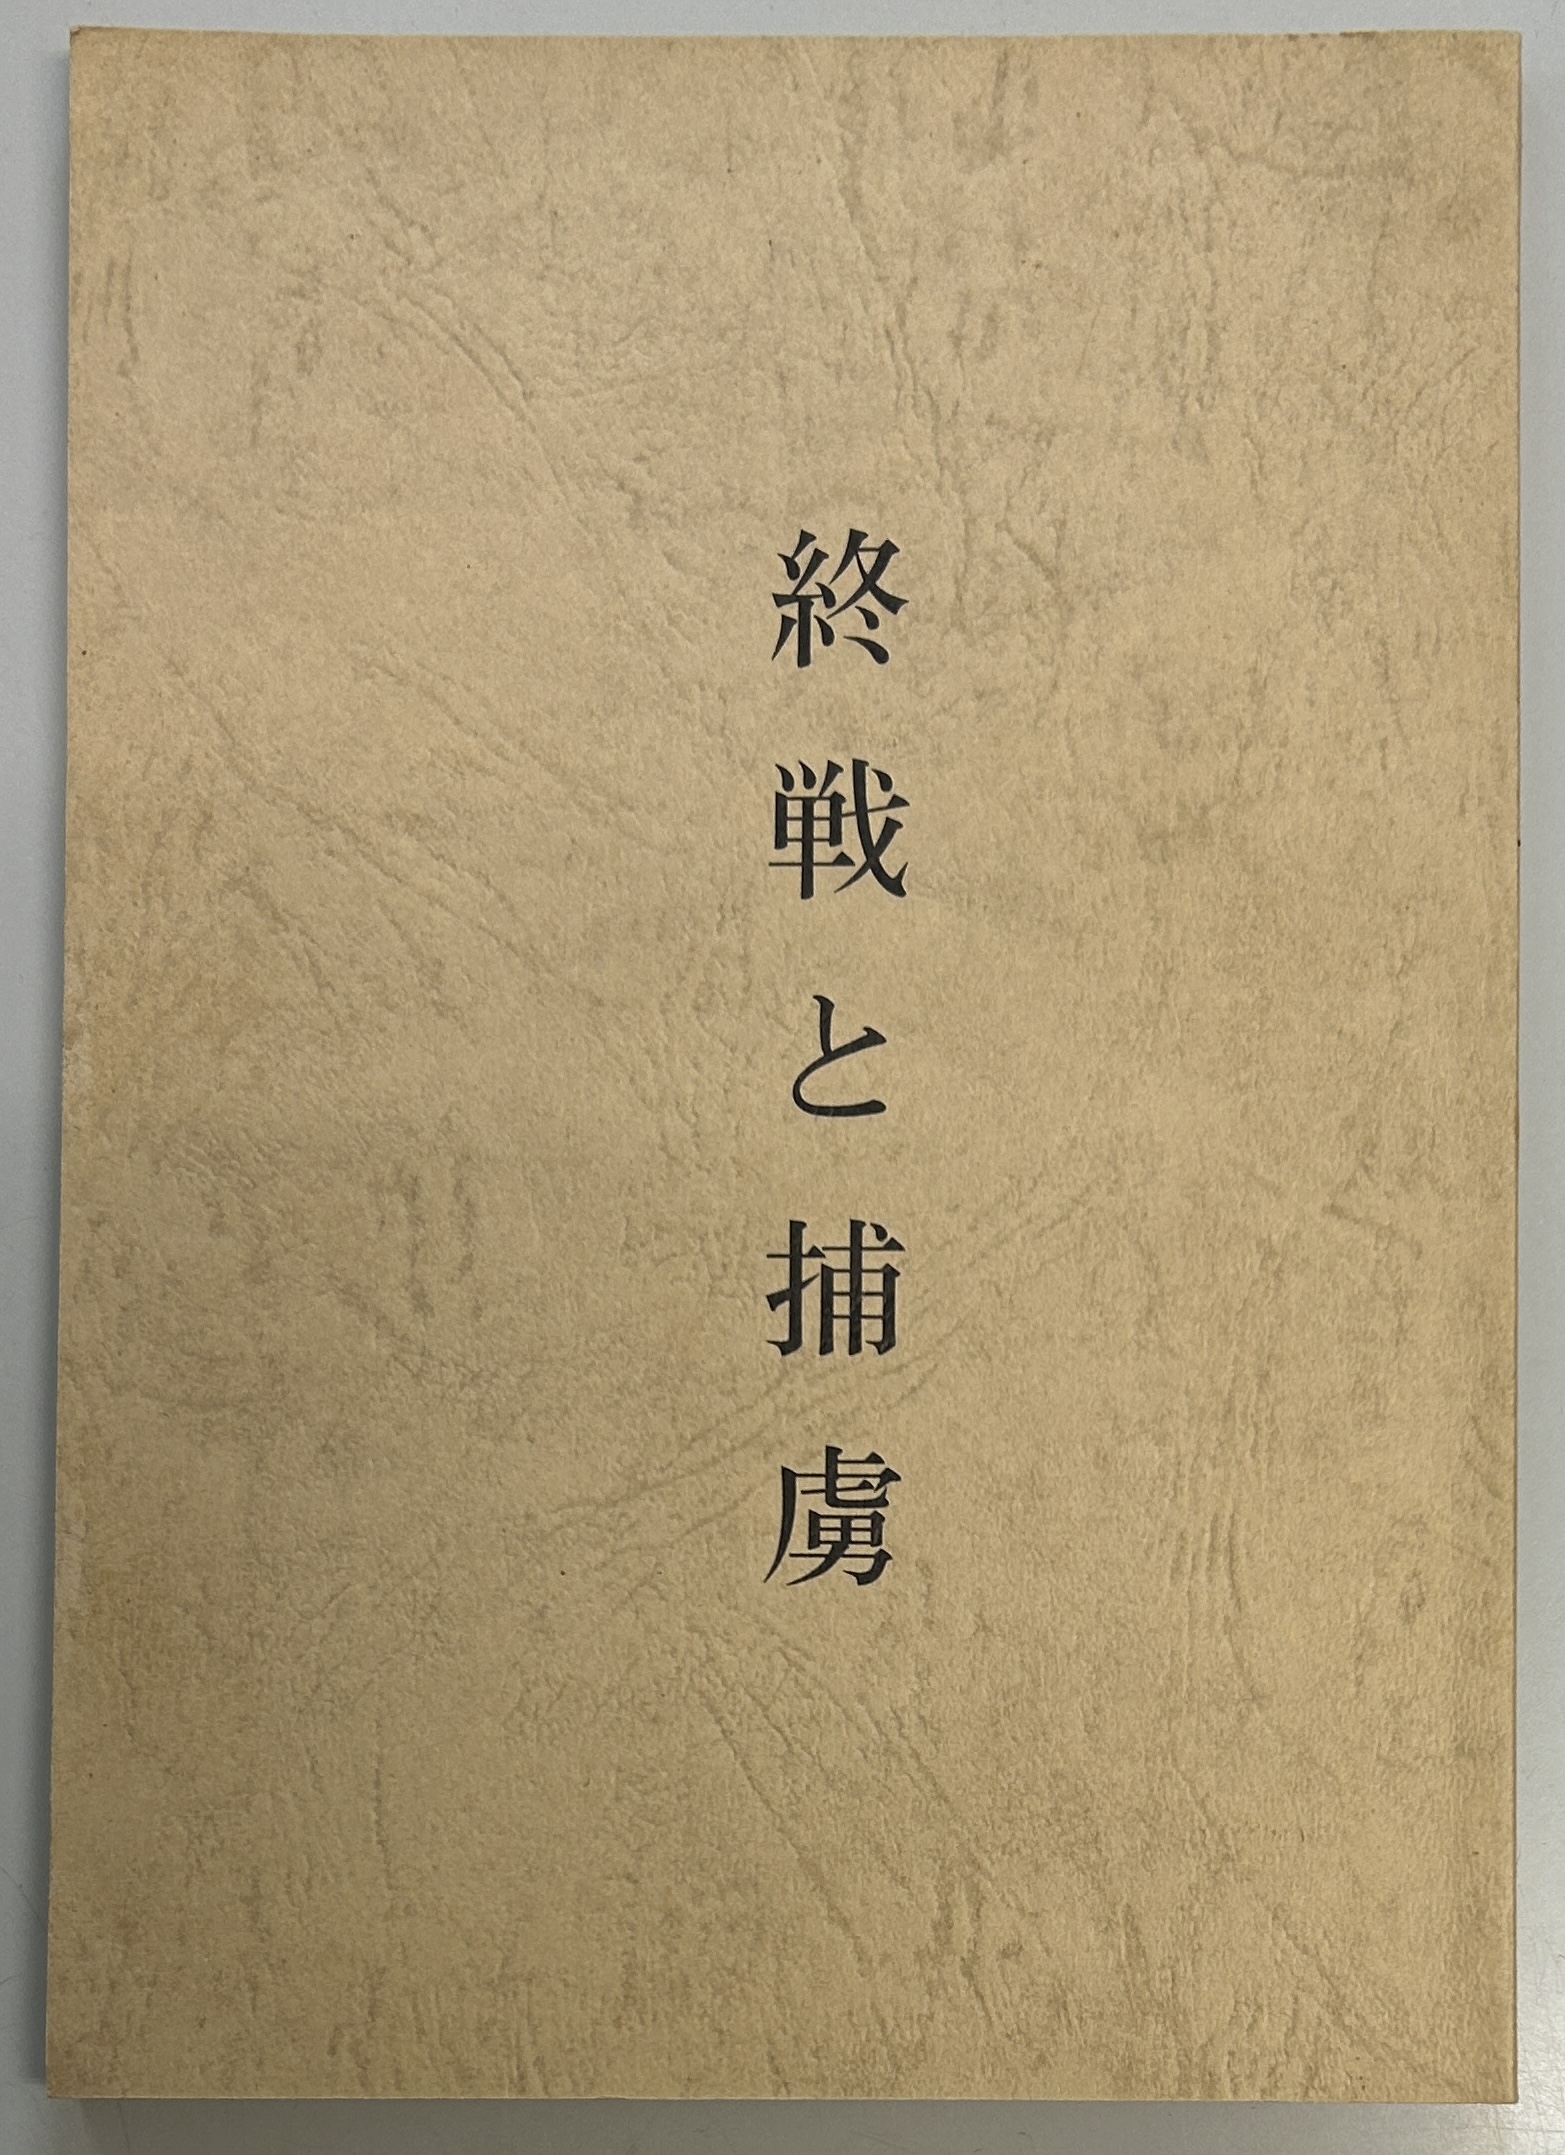 終戦と捕虜